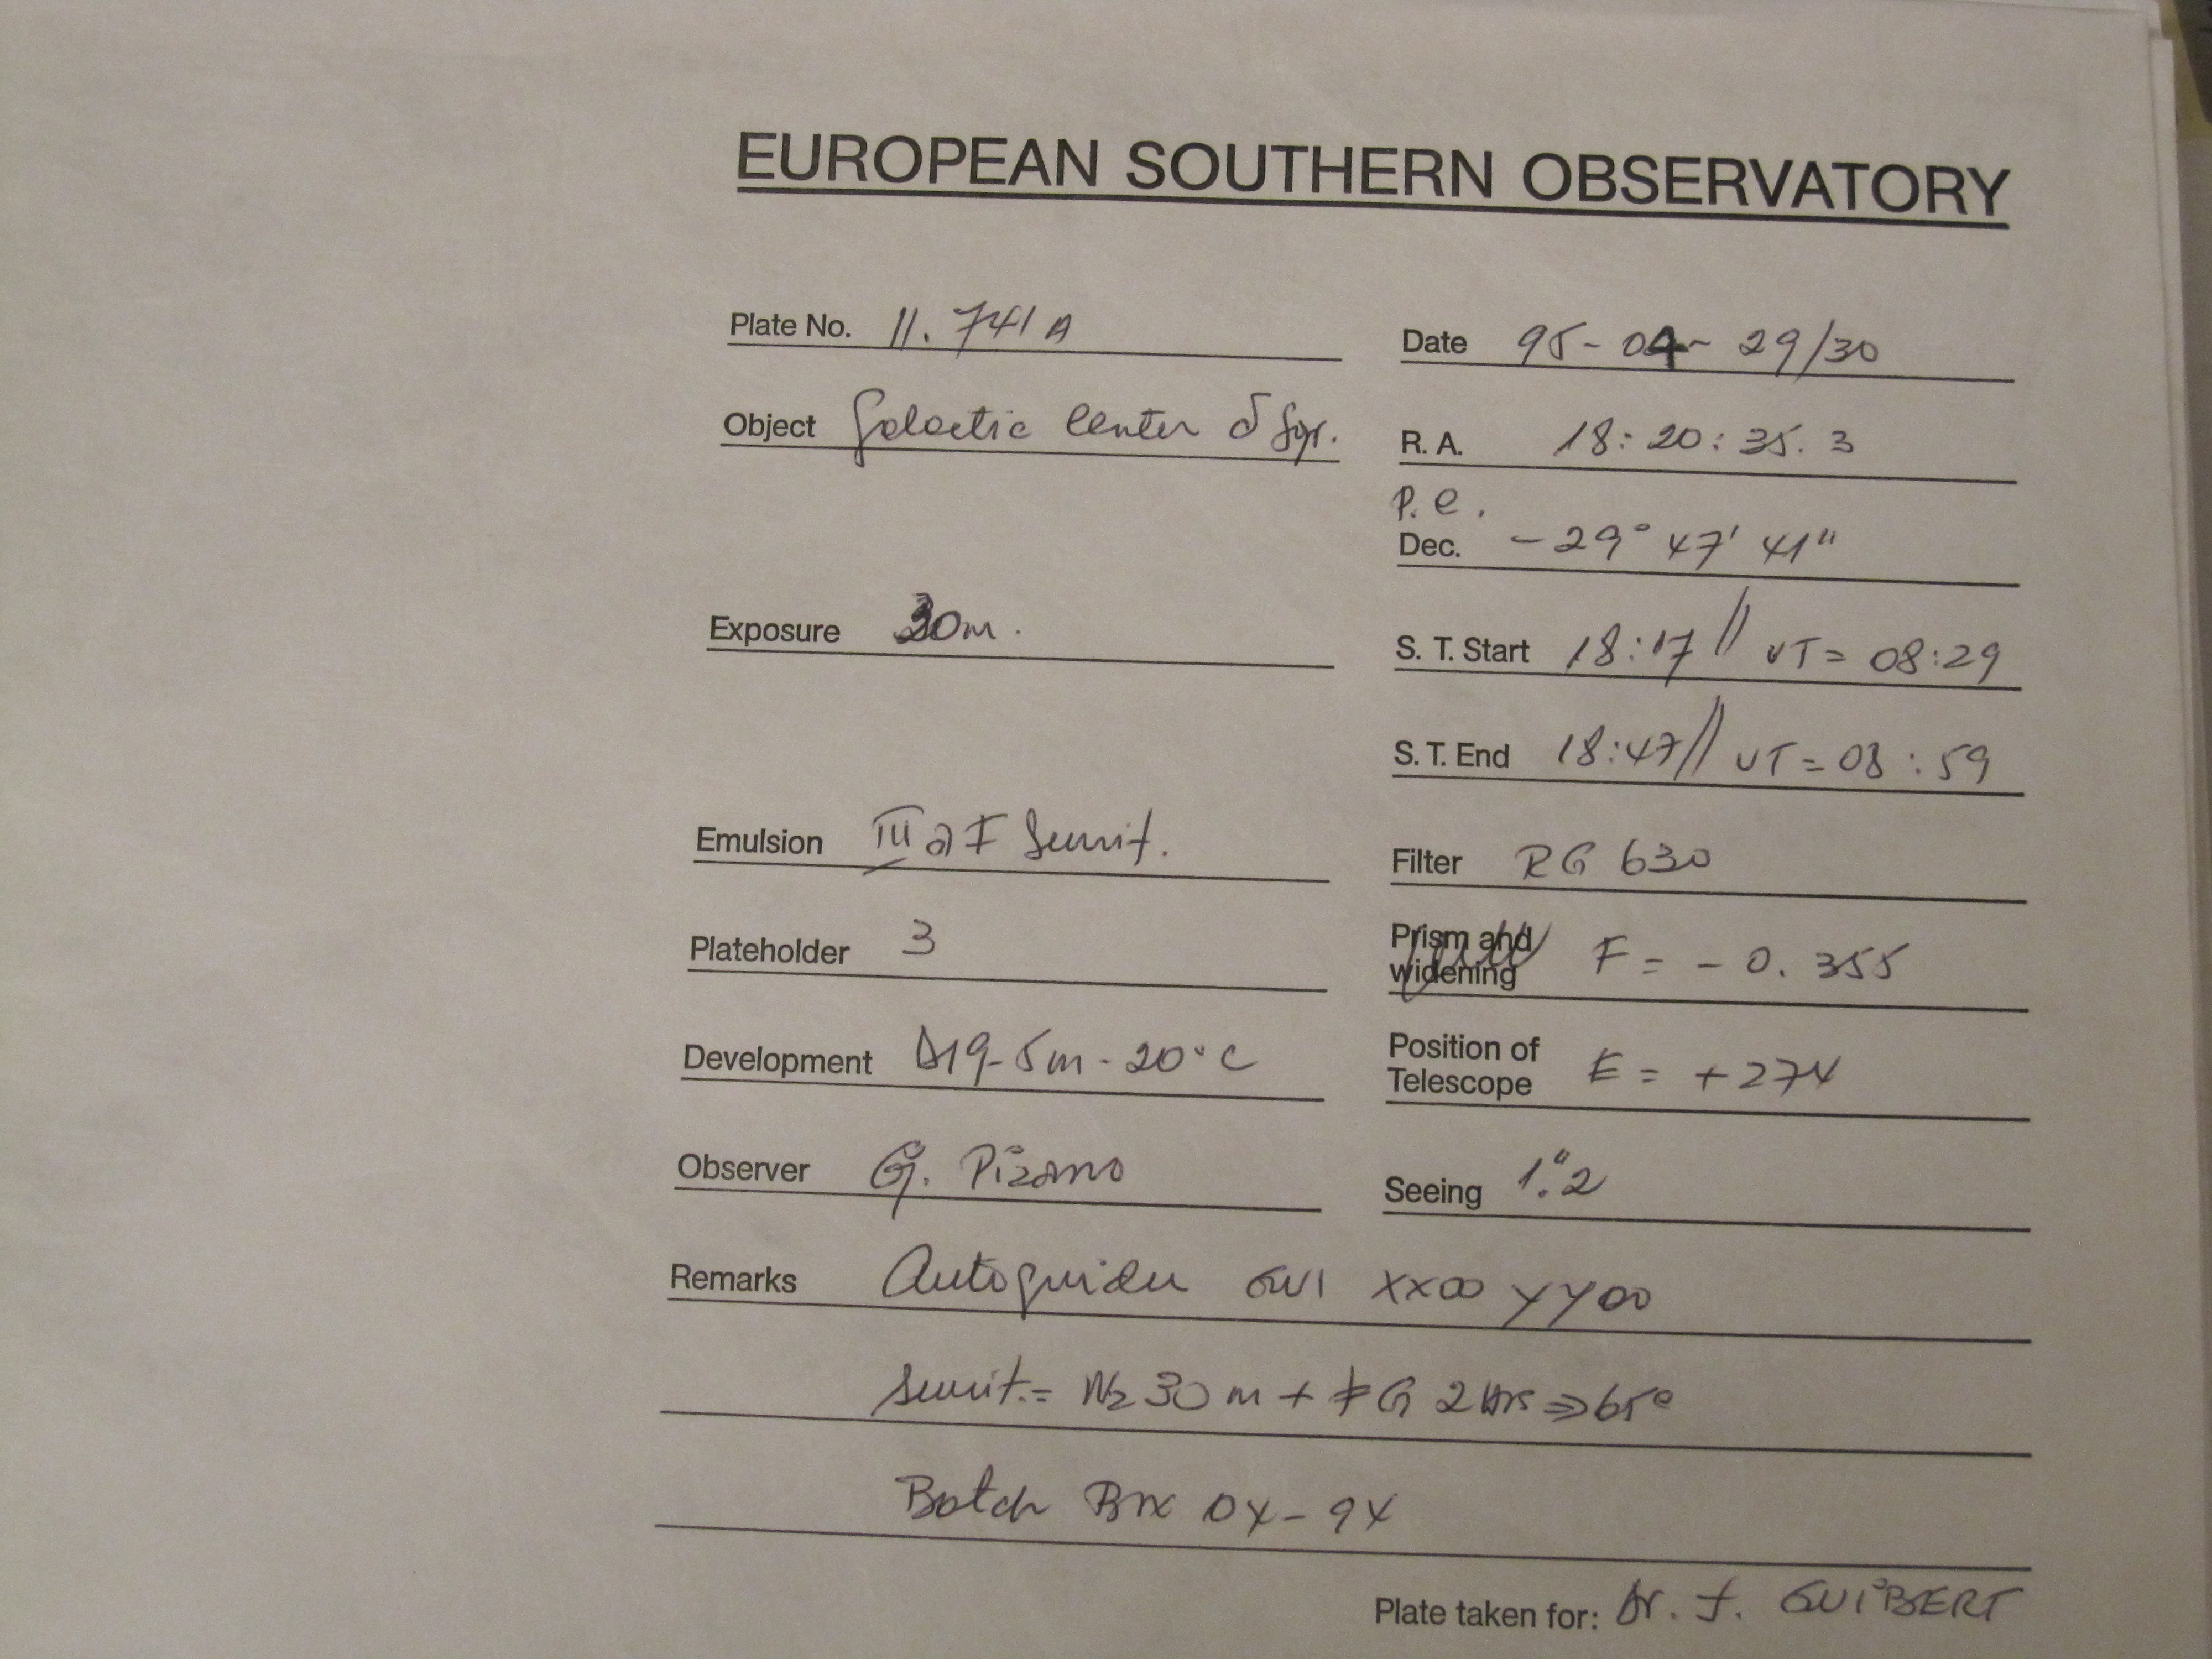 EUROPEAN SOUTHERN OBSERVATORY
Plate No. 11.741A
Date 95-04-29/30
Object Galactic Center δ Sgr.
R. A. 18:20:35.3
P.e.
Dec. -29° 47' 41"
Exposure 30m.
S. T. Start 18:17 // UT= 08:29
S. T. End 18:47 // UT=08:59
Emulsion III a F Sensit.
Filter RG 630
Plateholder 3
Prism and widening F = -0.355
Development D19-5m-20°C
Position of Telescope E = +274
Observer G. Pizarro
Seeing 1".2
Remarks Autoguider GUI XX00 YY00
Sensit.= N2 30m + FG 2Hrs ⇒ 65°
Batch Box 04-94
Plate taken for: Dr. J. GUIBERT